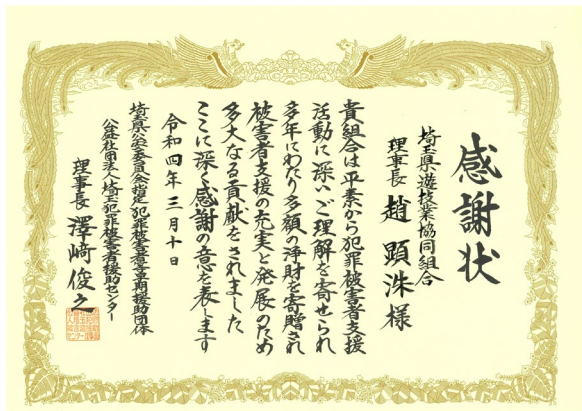 感謝状
埼玉県遊技業協同組合
理事長 趙顕洙様
貴組合は平素から犯罪被害者支援
活動に深いご理解を寄せられ
多年にわたり多額の浄財を寄贈され
被害者支援の充実と発展のため
多大なる貢献をされました
ここに深く感謝の意を表します
令和四年三月十日
埼玉県公安委員会指定犯罪被害者等早期援助団体
公益社団法人埼玉犯罪被害者援助センター
理事長 澤﨑俊之